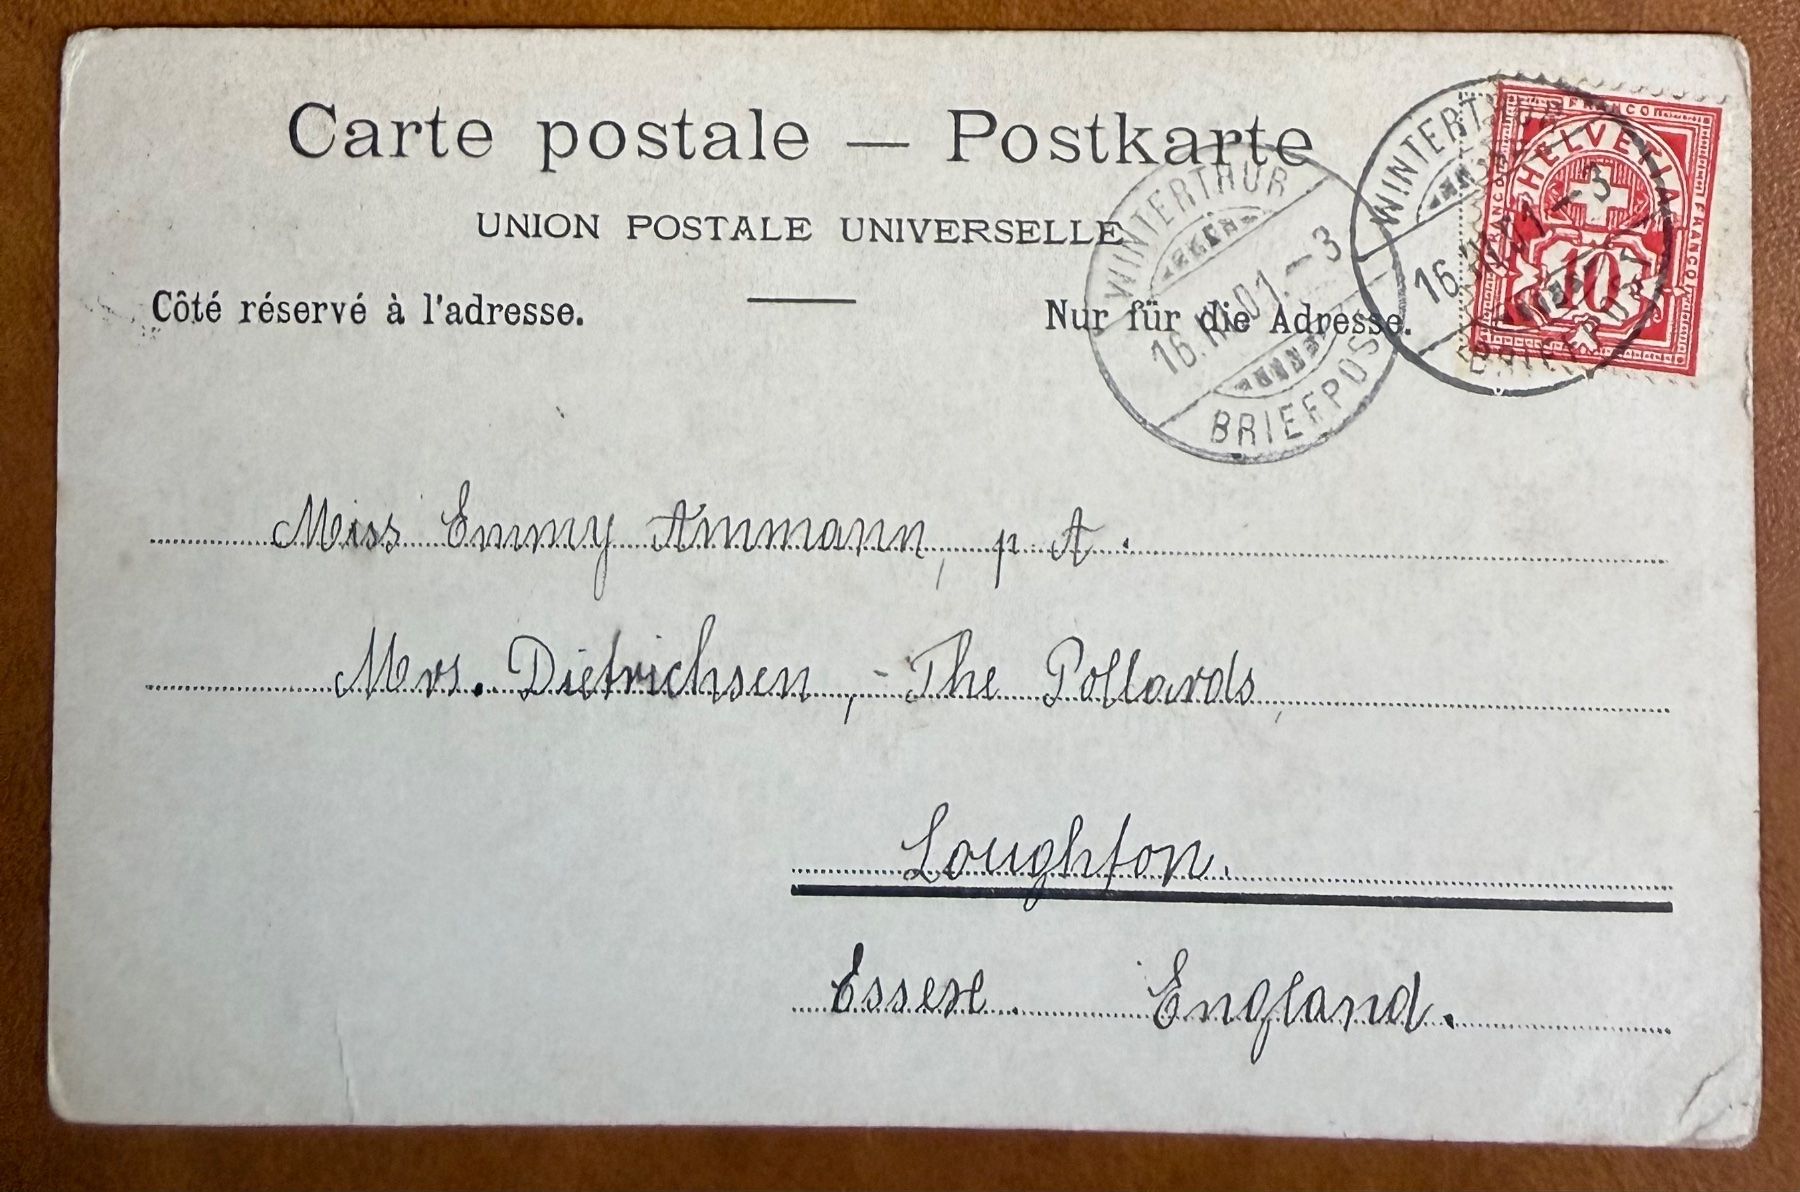 Carte postale — Postkarte
UNION POSTALE UNIVERSELLE
Côté réservé à l'adresse.
Nur für die Adresse.
WINTERTHUR
16. 01.–3
BRIEFPOST
WINTERTHUR
16. 01–3
BRIEFPOST
FRANCO
HELVETIA
FRANCO
FRANCO
10
Miss Emmy Ammann, p A.
Mrs. Dietrichsen, - The Pollards,
Loughton.
Essex. England.